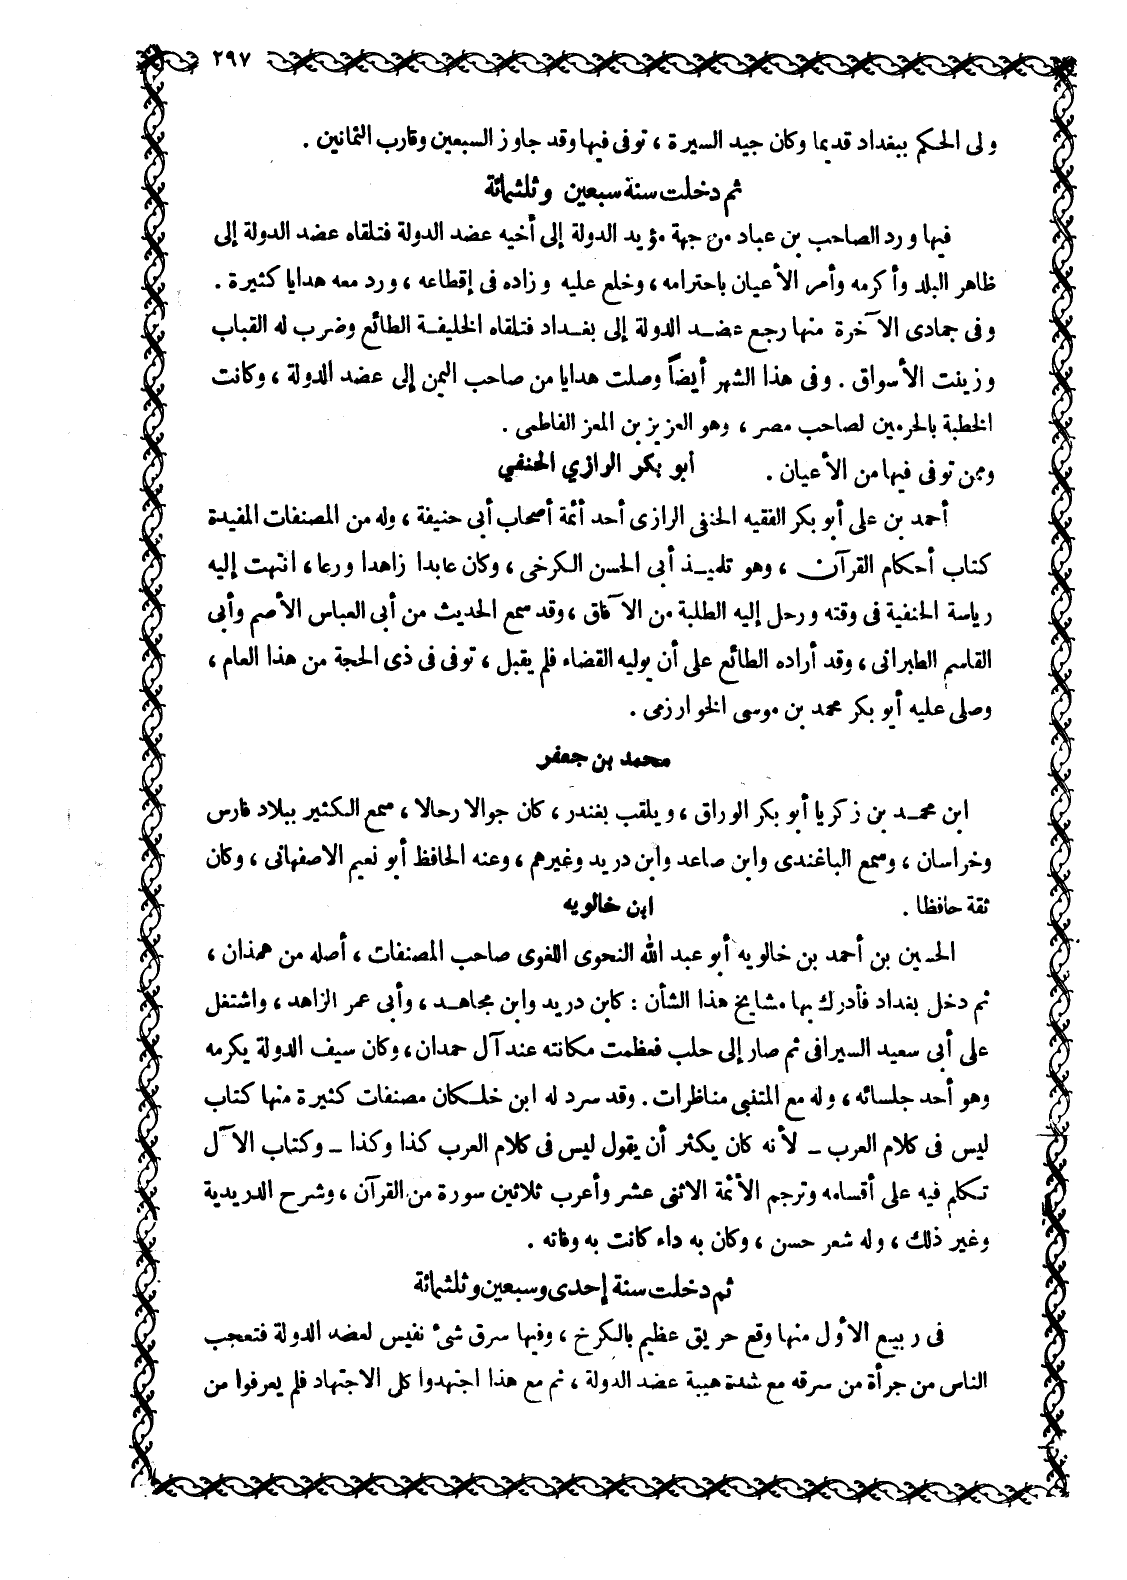 ٢٩٧
ولى الحكم ببغداد قديما وكان جيد السيرة ، توفى فيها وقد جاوز السبعين وقارب الثمانين .
ثم دخلت سنة سبعين وثلثمائة
فيها ورد الصاحب بن عباد من جهة مؤيد الدولة إلى أخيه عضد الدولة فتلقاه عضد الدولة إلى
ظاهر البلد وأكرمه وأمر الأعيان باحترامه ، وخلع عليه وزاده فى إقطاعه ، ورد معه هدايا كثيرة .
وفى جمادى الآخرة منها رجع عضد الدولة إلى بغداد فتلقاه الخليفة الطائع وضرب له القباب
وزينت الأسواق . وفى هذا الشهر أيضاً وصلت هدايا من صاحب اليمن إلى عضد الدولة ، وكانت
الخطبة بالحرمين لصاحب مصر ، وهو العزيز بن المعز الفاطمى .
وممن توفى فيها من الأعيان . أبو بكر الرازي الحنفي
أحمد بن على أبو بكر الفقيه الحنفى الرازى أحد أئمة أصحاب أبى حنيفة ، وله من المصنفات المفيدة
كتاب أحكام القرآن ، وهو تلميذ أبى الحسن الكرخى ، وكان عابدا زاهدا ورعا ، انتهت إليه
رياسة الحنفية فى وقته ورحل إليه الطلبة من الآفاق ، وقد سمع الحديث من أبى العباس الأصم وأبى
القاسم الطبرانى ، وقد أراده الطائع على أن يوليه القضاء فلم يقبل ، توفى فى ذى الحجة من هذا العام ،
وصلى عليه أبو بكر محمد بن موسى الخوارزمى .
محمد بن جعفر
ابن محمد بن زكريا أبو بكر الوراق ، ويلقب بغندر ، كان جوالا رحالا ، سمع الكثير ببلاد فارس
وخراسان ، وسمع الباغندى وابن صاعد وابن دريد وغيرهم ، وعنه الحافظ أبو نعيم الاصفهانى ، وكان
ثقة حافظا . ابن خالويه
الحسين بن أحمد بن خالويه أبو عبد الله النحوى اللغوى صاحب المصنفات ، أصله من همذان ،
ثم دخل بغداد فأدرك بها مشايخ هذا الشأن : كابن دريد وابن مجاهد ، وأبى عمر الزاهد ، واشتغل
على أبى سعيد السيرافى ثم صار إلى حلب فعظمت مكانته عند آل حمدان ، وكان سيف الدولة يكرمه
وهو أحد جلسائه ، وله مع المتنبى مناظرات . وقد سرد له ابن خلكان مصنفات كثيرة منها كتاب
ليس فى كلام العرب ــ لأنه كان يكثر أن يقول ليس فى كلام العرب كذا وكذا ــ وكتاب الآل
تكلم فيه على أقسامه وترجم الأئمة الاثنى عشر وأعرب ثلاثين سورة من القرآن ، وشرح الدريدية
وغير ذلك ، وله شعر حسن ، وكان به داء كانت به وفاته .
ثم دخلت سنة إحدى وسبعين وثلثمائة
فى ربيع الأول منها وقع حريق عظيم بالكرخ ، وفيها سرق شئ نفيس لعضد الدولة فتعجب
الناس من جرأة من سرقه مع شدة هيبة عضد الدولة ، ثم مع هذا اجتهدوا كل الاجتهاد فلم يعرفوا من